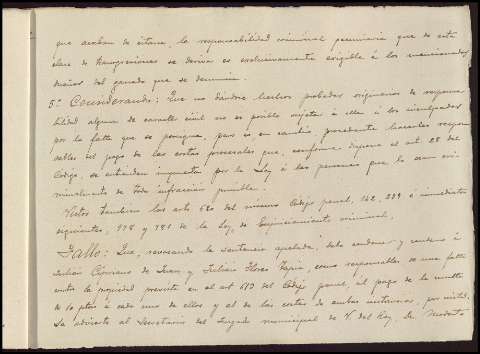 que acaban de citarse, la responsabilidad criminal pecuniaria que de esta
clase de transgresiones se deriva es exclusivamente exigible á los mencionados
dueños del ganado que se denuncia.
5.º Considerando: Que no dándose hechos probados originarios de responsa-
bilidad alguna de caracter civil no es posible sujetar á ella á los inculpados
por la falta que se persigue, pero es en cambio, procedente hacerles respon-
sables del pago de las costas procesales que, conforme dispone el art 28 del
Código, se entienden impuestas por la Ley á las personas que lo son cri-
minalmente de toda infracción punible.
Vistos tambien los arts 620 del mismo Código penal, 142, 239 é inmediatos
siguientes, 978 y 981 de la Ley de Enjuiciamiento criminal,
Fallo: Que, revocando la sentencia apelada, debo condenar y condeno á
Julian Cipriano de Juan y Julián Flores Tapia, como responsables de una falta
contra la propiedad prevista en el art 612 del Código penal, al pago de la multa
de 10 ptas á cada uno de ellos y al de las costas de ambas instancias, por mitad.
Se advierte al Secretario del Juzgado municipal de V. del Rey, Dn Modesto